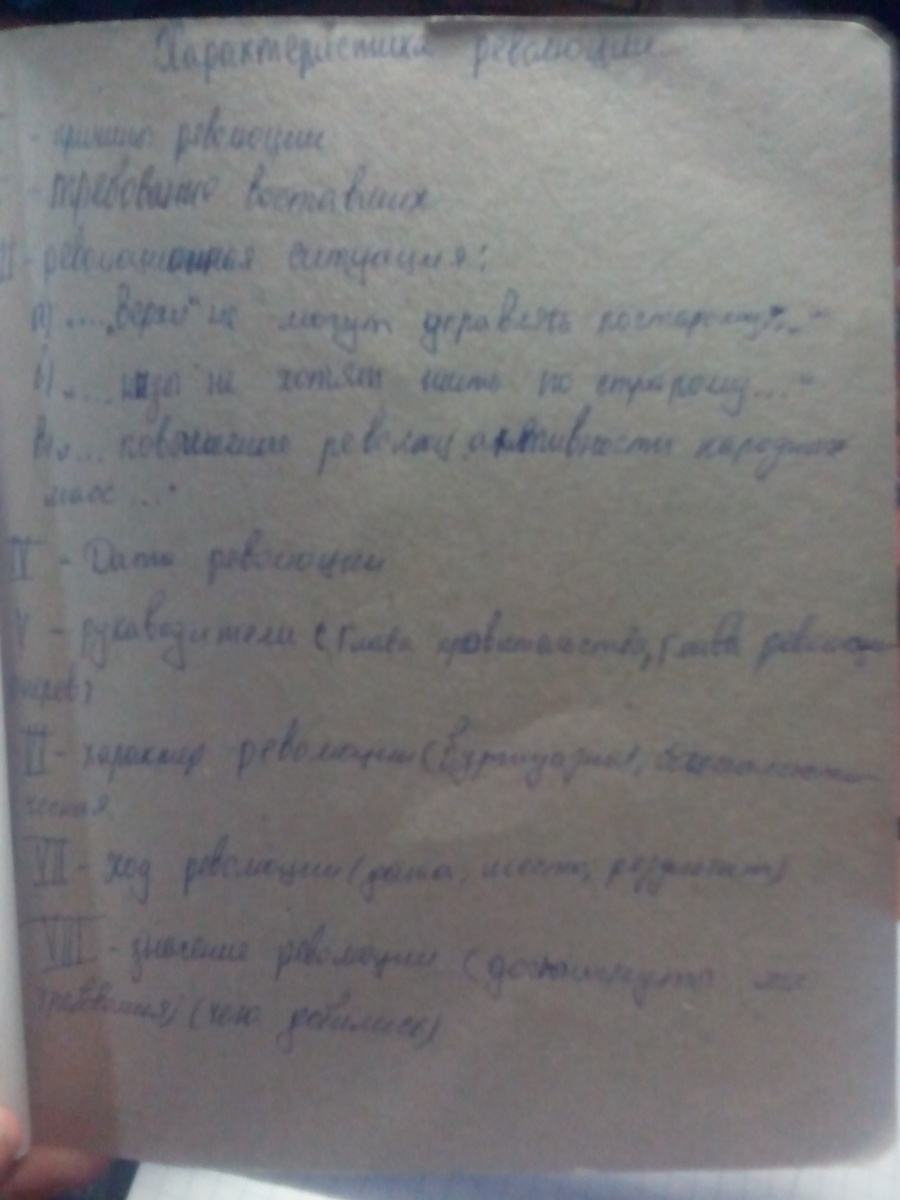 Характеристика революции
- причины революции
- требование воставших
III - революционная ситуация:
а) "...."верхи" не могут управлять постарому..."
б) "....низы не хотят жить по старому...."
в) "... повышение револяц. активности народных
масс ..."
IV - Дата революции
V - руководители (глава правительства, глава революцио
неров)
VI - характер революции (буржуазная,
ческая
VII - ход революции (дата, место, результат)
VIII - значение революции (достигнуто ли
требования) (чего добились)